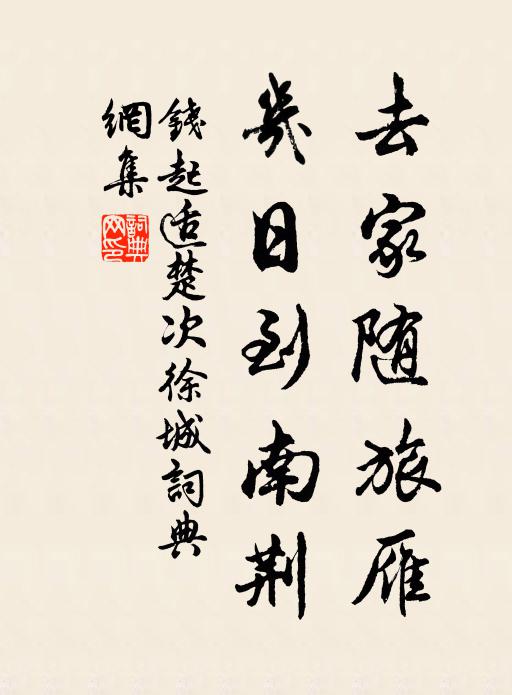 去家随旅雁
幾日到南荆
錢起适楚次徐城詞典
網集
詞典网印